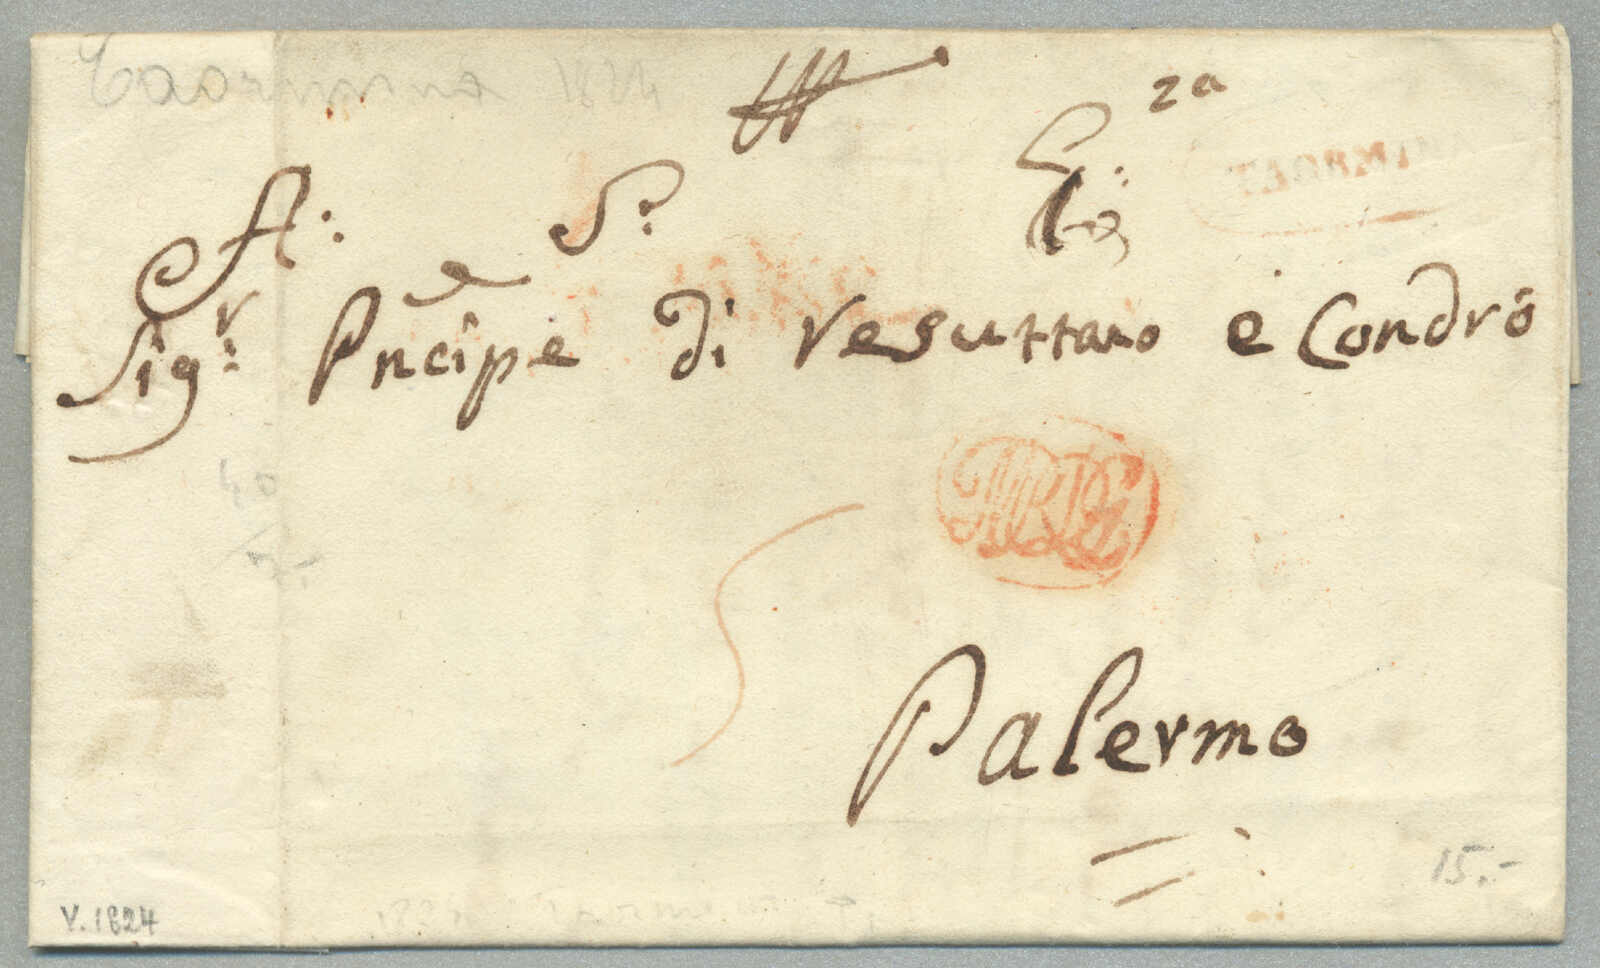 Taormina 1824
2a
TAORMINA
A: S. E:
Sigr: Pncipe di Resuttano e Condró
40
Palermo
15.-
V. 1824
1824 Taormina